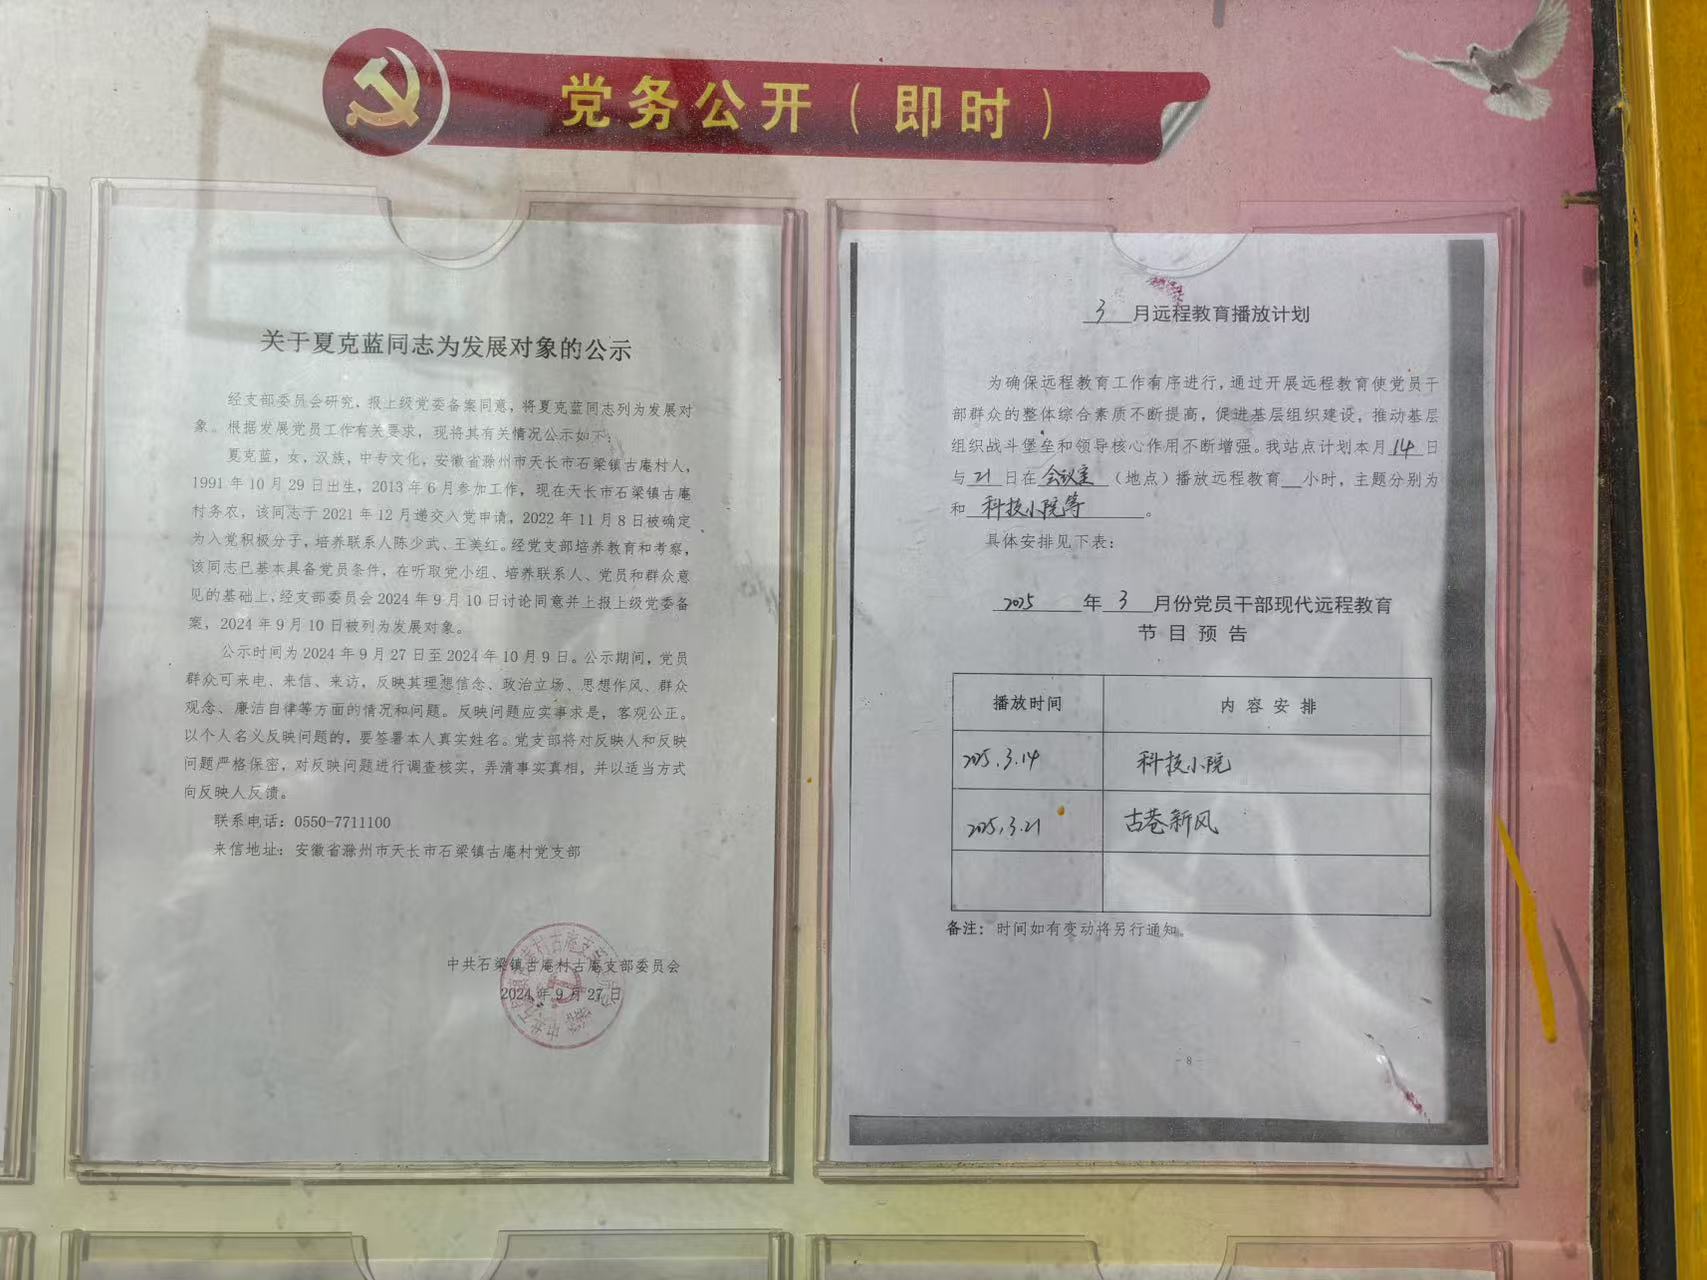 党务公开（即时）
关于夏克蓝同志为发展对象的公示
经支部委员会研究，报上级党委备案同意，将夏克蓝同志列为发展对
象。根据发展党员工作有关要求，现将其有关情况公示如下：
夏克蓝，女，汉族，中专文化，安徽省滁州市天长市石梁镇古庵村人，
1991年10月29日出生，2013年6月参加工作，现在天长市石梁镇古庵
村务农，该同志于2021年12月递交入党申请，2022年11月8日被确定
为入党积极分子，培养联系人陈少武、王美红。经党支部培养教育和考察，
该同志已基本具备党员条件，在听取党小组、培养联系人、党员和群众意
见的基础上，经支部委员会2024年9月10日讨论同意并上报上级党委备
案，2024年9月10日被列为发展对象。
公示时间为2024年9月27日至2024年10月9日。公示期间，党员
群众可来电、来信、来访，反映其理想信念、政治立场、思想作风、群众
观念、廉洁自律等方面的情况和问题。反映问题应实事求是，客观公正。
以个人名义反映问题的，要签署本人真实姓名。党支部将对反映人和反映
问题严格保密，对反映问题进行调查核实，弄清事实真相，并以适当方式
向反映人反馈。
联系电话：0550-7711100
来信地址：安徽省滁州市天长市石梁镇古庵村党支部
中共石梁镇古庵村古庵支部委员会
2024年9月27日
3月远程教育播放计划
为确保远程教育工作有序进行，通过开展远程教育使党员干
部群众的整体综合素质不断提高，促进基层组织建设，推动基层
组织战斗堡垒和领导核心作用不断增强。我站点计划本月14日
与21日在会议室（地点）播放远程教育__小时，主题分别为
和 科技小院等 。
具体安排见下表：
2025年3月份党员干部现代远程教育
节目预告
播放时间 内容安排
2025.3.14 科技小院
2025.3.21 古巷新风
备注：时间如有变动将另行通知。
- 8 -